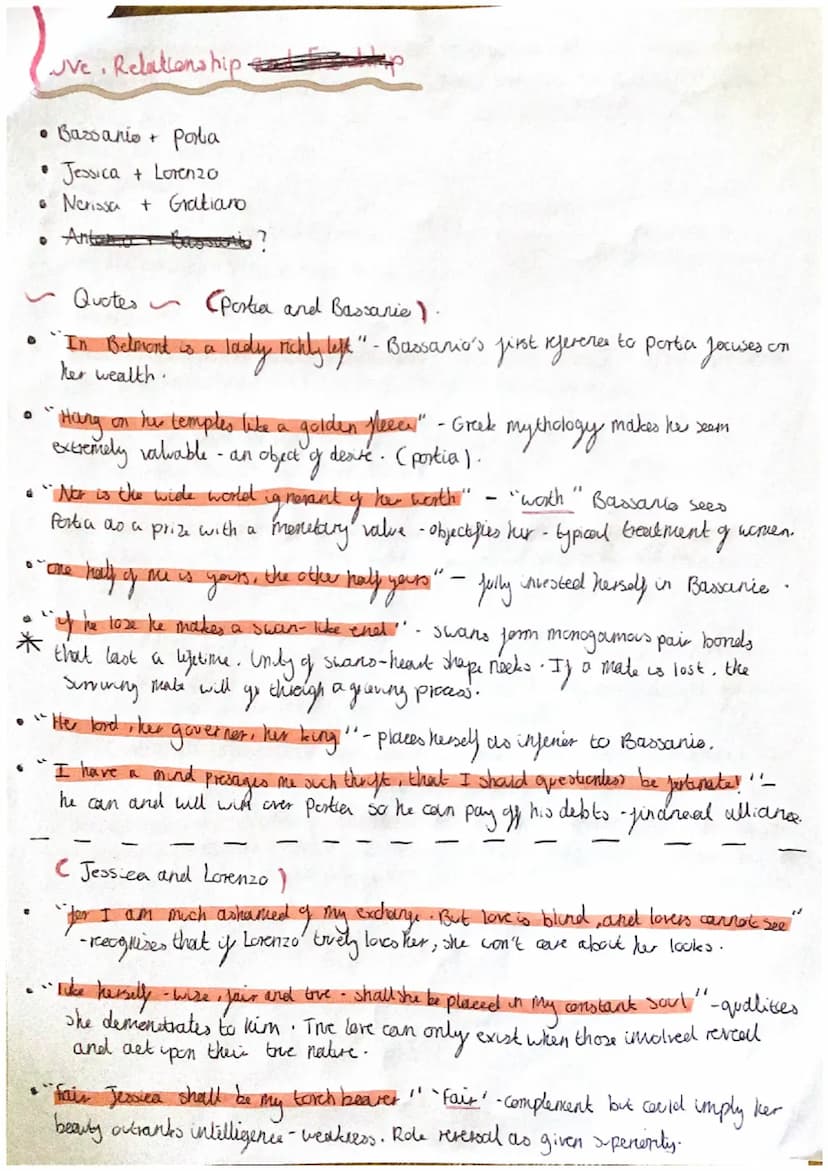 ove. Relationship
• Bassanio + Portia
• Jessica + Lorenzo
• Nerissa + Gratiano
• Antonio + Bassanio ?
~ Quotes ~ (Portia and Bassanio).
• "In Belmont is a lady richly left" - Bassanio's first reference to Portia focuses on
her wealth.
• "Hang on her temples like a golden fleece" - Greek mythology makes her seem
extremely valuable - an object of desire. (portia).
• "Nor is the wide world ignorant of her worth" - "worth" Bassanio sees
Portia as a prize with a monetary value - objectifies her - typical treatment of women.
• "one half of me is yours, the other half yours" - fully invested herself in Bassanio.
• "if he lose he makes a swan-like end" - swans form monogamous pair bonds
* that last a lifetime. Unity of swans-heart shape necks. If a mate is lost, the
surviving mate will go through a grieving process.
• "Her lord, her governer, her king" - places herself as inferior to Bassanio.
• "I have a mind presages me such thrift, that I should questionless be fortunate!" -
he can and will win over Portia so he can pay off his debts - financial alliance.
(Jessica and Lorenzo)
• "for I am much ashamed of my exchange. But love is blind, and lovers cannot see"
- recognises that if Lorenzo truely loves her, she won't care about her looks.
• "like herself - wise, fair and true - shall she be placed in my constant soul" - qualities
she demonstrates to him. True love can only exist when those involved reveal
and act upon their true nature.
• "Fair Jessica shall be my torch bearer" 'Fair' - complement but could imply her
beauty outranks intelligence - weakness. Role reversal as given superiority.